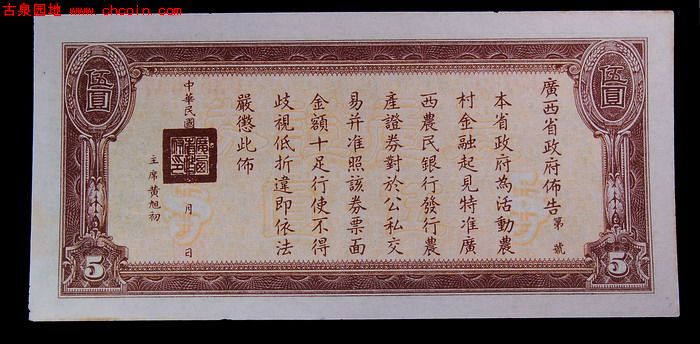 古泉园地
www.chcoin.com
伍圓
伍圓
廣西省政府佈告 第 號
本省政府為活動農
村金融起見特准廣
西農民銀行發行農
產證券對於公私交
易并准照該券票面
金額十足行使不得
歧視低折違即依法
嚴懲此佈
中華民國 月 日
主席黃旭初
5
5